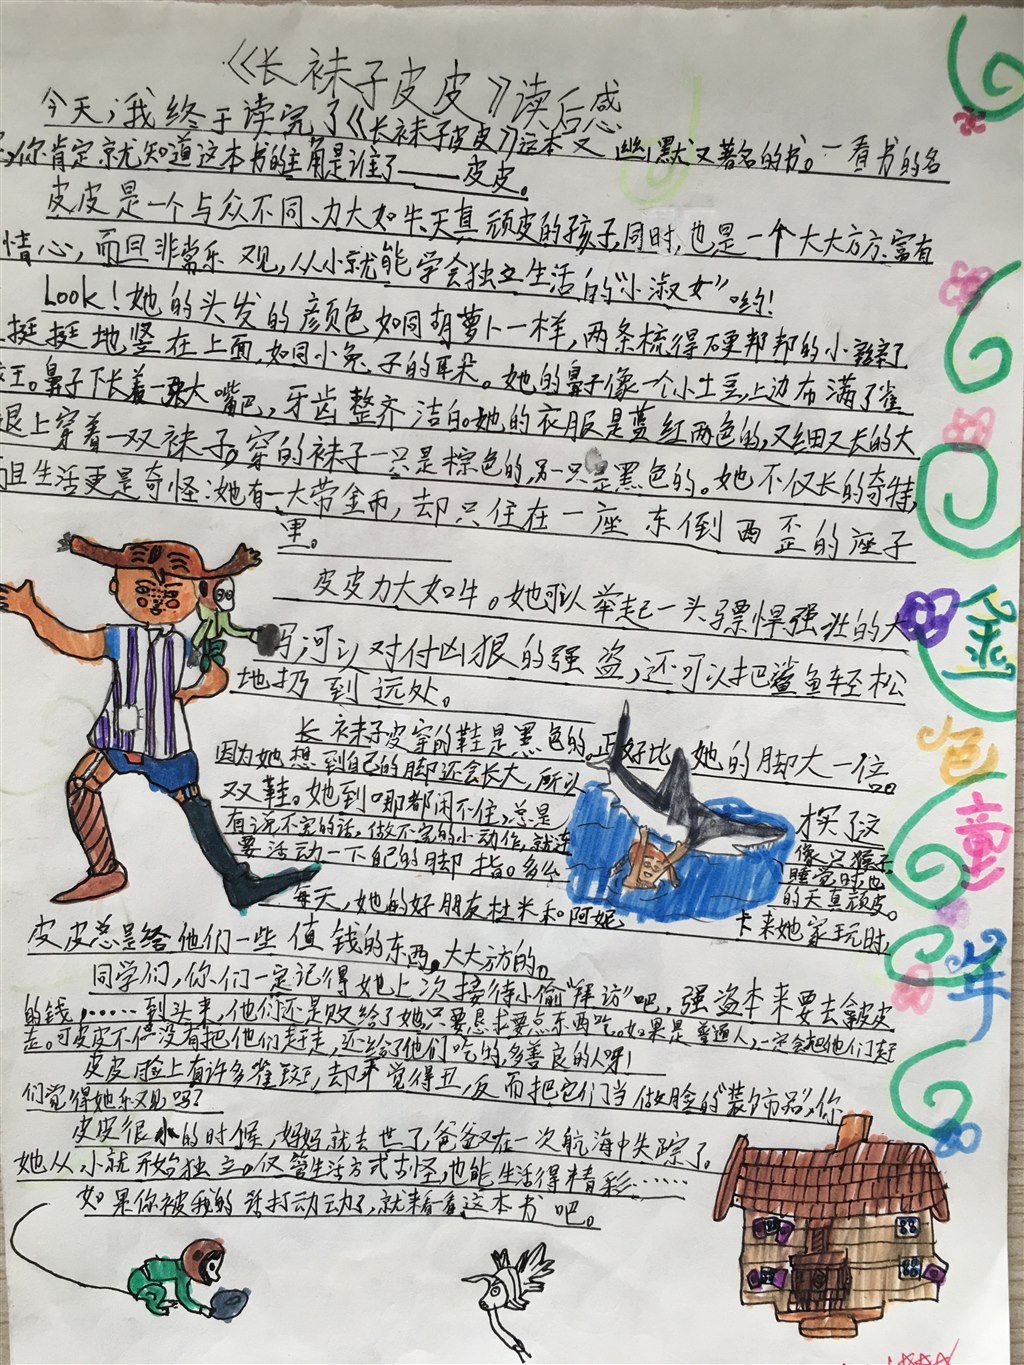 《长袜子皮皮》读后感
今天，我终于读完了《长袜子皮皮》这本又幽默又著名的书。一看书的名
，你肯定就知道这本书的主角是谁了——皮皮。
皮皮是一个与众不同、力大如牛、天真顽皮的孩子，同时，也是一个大大方方、富有
情心，而且非常乐观，从小就能学会独立生活的“小淑女”哟！
Look！她的头发的颜色如同胡萝卜一样，两条梳得硬邦邦的小辫子
挺挺地竖在上面，如同小兔子的耳朵。她的鼻子像一个小土豆，上边布满了雀
斑。鼻子下长着一张大嘴巴，牙齿整齐洁白。她的衣服是蓝红两色的，又细又长的大
腿上穿着一双袜子，穿的袜子一只是棕色的，另一只是黑色的。她不仅长的奇特，
而且生活更是奇怪：她有一大带金币，却只住在一座东倒西歪的座子
里。
皮皮力大如牛。她可以举起一头骠悍强壮的大
马，可以对付凶狠的强盗，还可以把鲨鱼轻松
地扔到远处。
长袜子皮穿的鞋是黑色的。正好比她的脚大一倍
因为她想到自己的脚还会长大，所以
才买了这
双鞋。她到哪都闲不住，总是
像只猴子，
有说不完的话，做不完的小动作，就连
睡觉时，也
要活动一下自己的脚指。多么
的天真顽皮。
每天，她的好朋友杜米和阿妮卡来她家玩时，
皮皮总是给他们一些值钱的东西，大大方的。
同学们，你们一定记得她上次接待小偷“拜访”吧，强盗本来要去拿皮皮
的钱，……到头来，他们还是败给了她，只要恳求要点东西吃。如果是普通人，一定会把他们赶
走。可皮皮不但没有把他们赶走，还给了他们吃的，多善良的人呀！
皮皮脸上有许多雀斑，却不觉得丑，反而把它们当做脸的“装饰品”，你
们觉得她乐观吗？
皮皮很小的时候，妈妈就去世了，爸爸又在一次航海中失踪了。
她从小就开始独立。仅管生活方式古怪，也能生活得精彩……
如果你被我的话打动动了，就来看看这本书吧。
金色童年